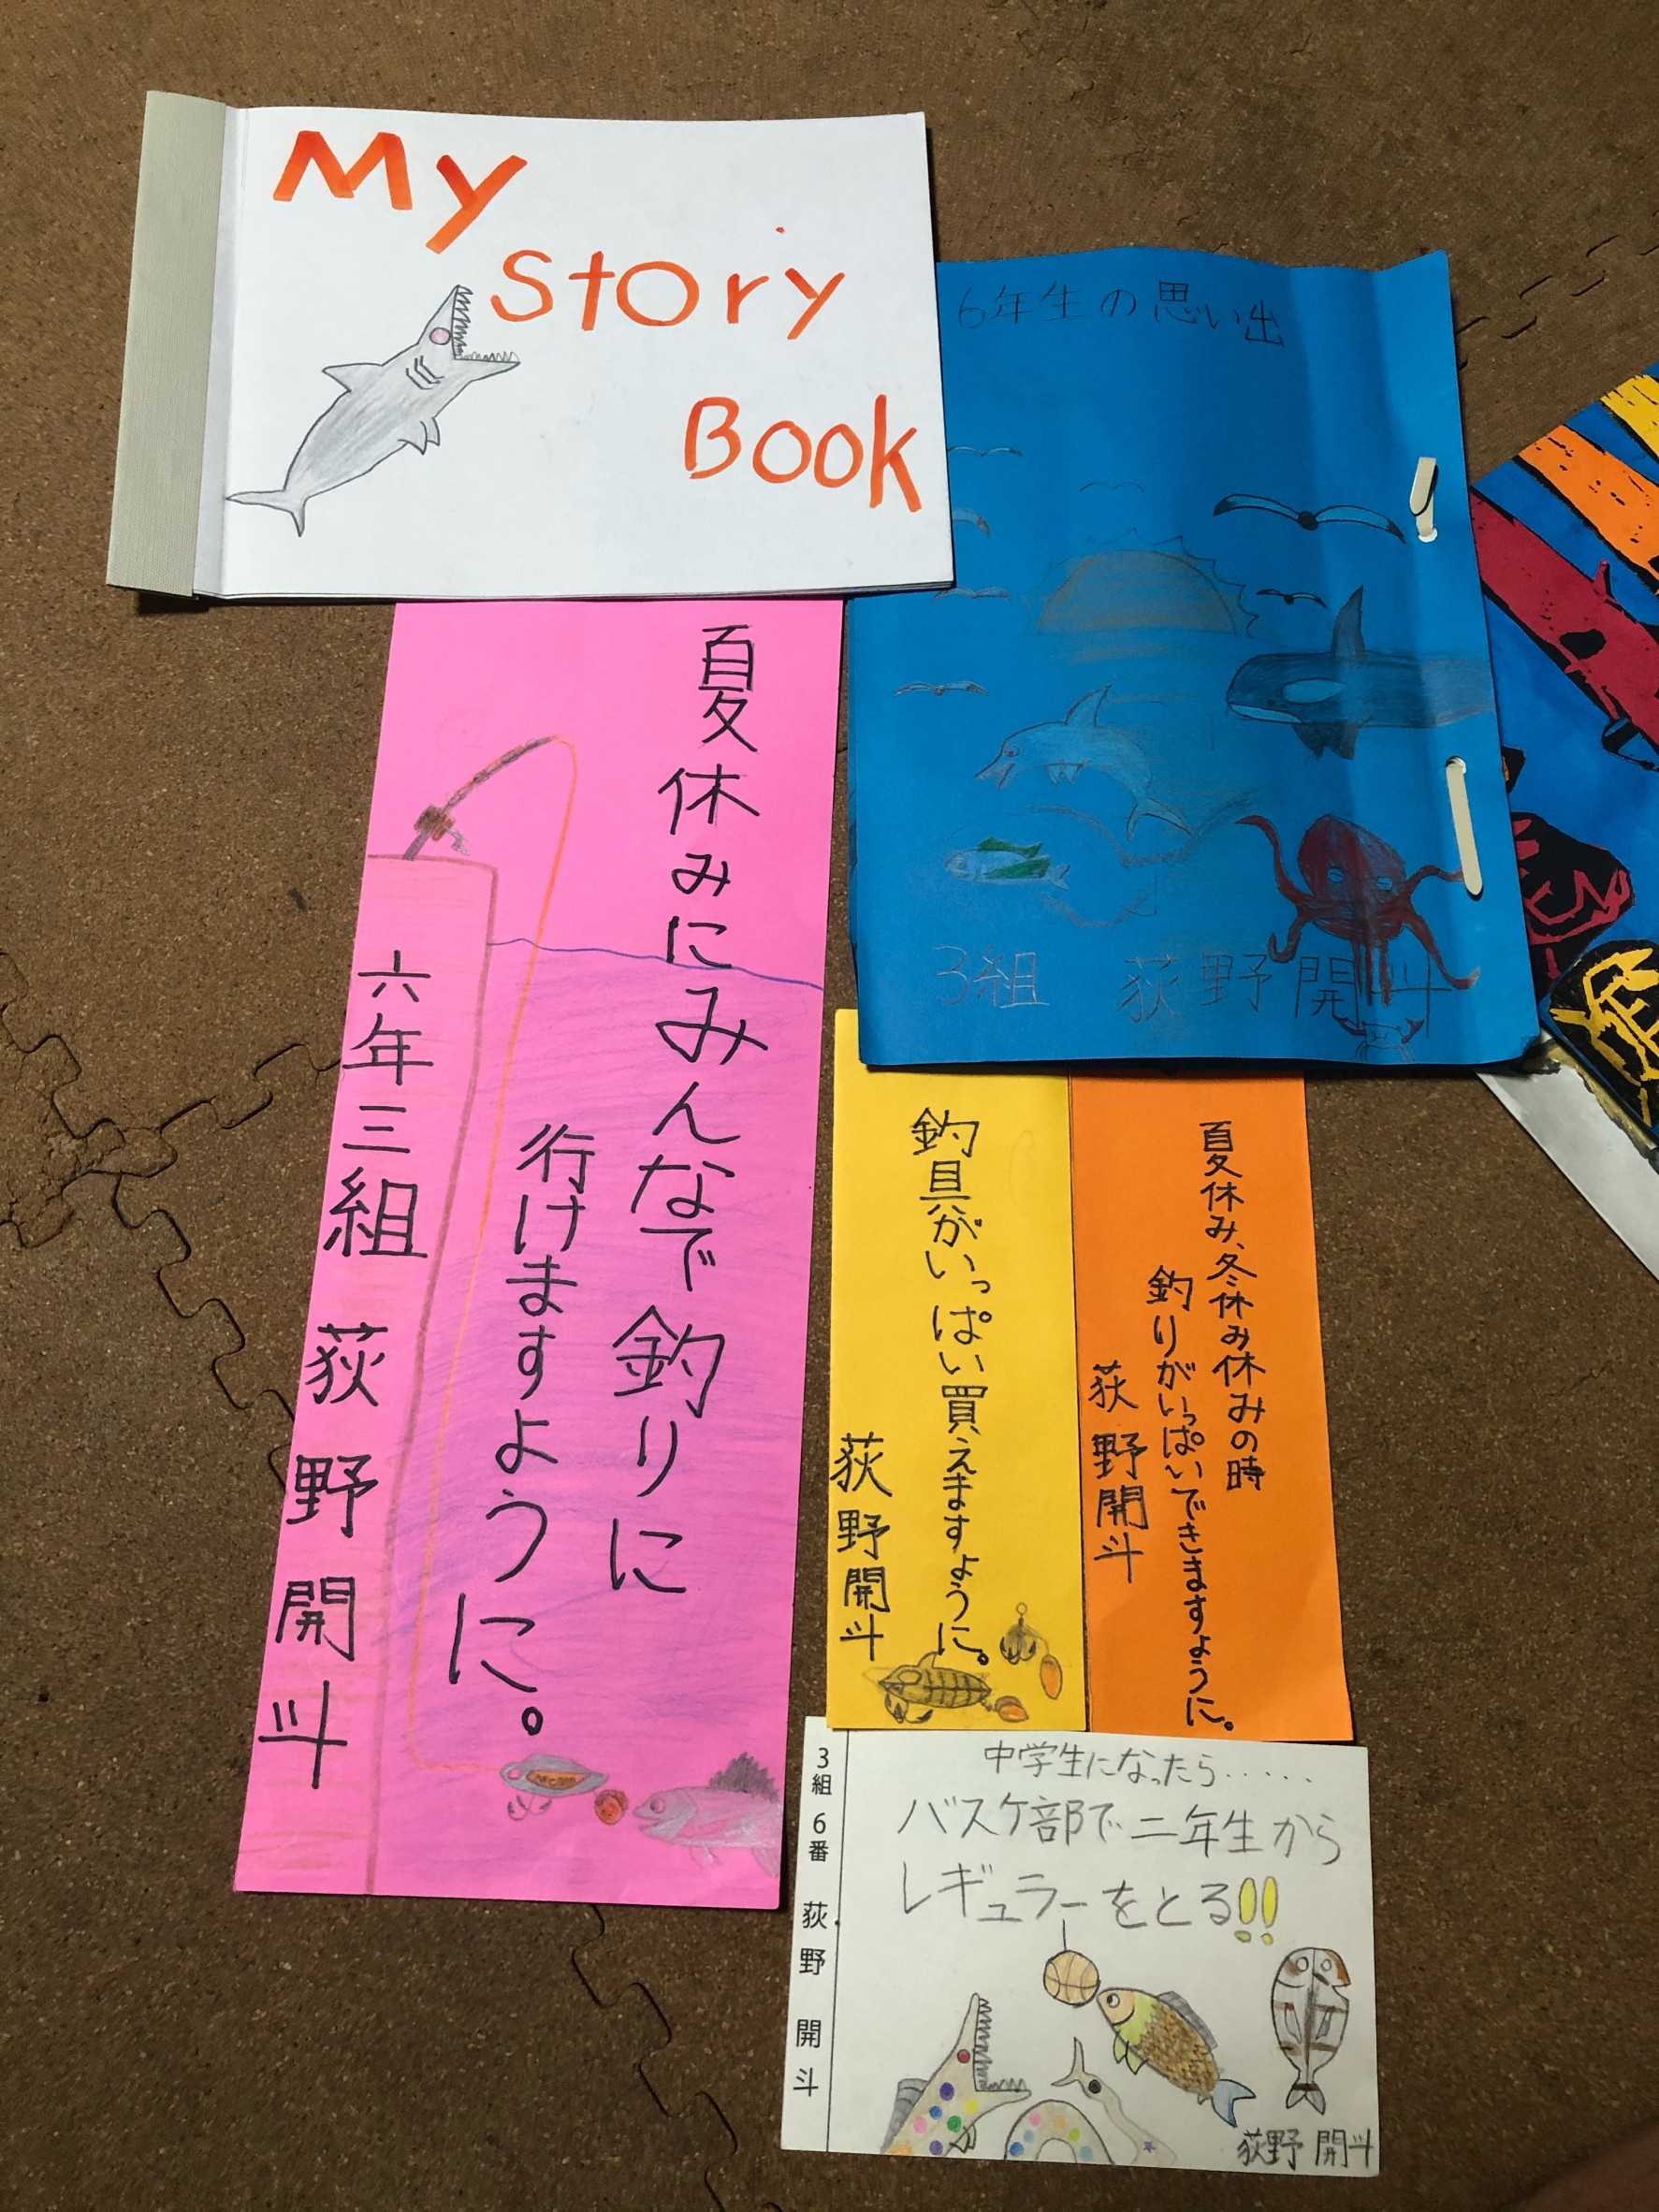 My
Story
Book
6年生の思い出
3組 荻野開斗
夏休みにみんなで釣りに
行けますように。
六年三組 荻野開斗
夏休み、冬休み休みの時
釣りがいっぱいできますように。
荻野開斗
釣具がいっぱい買えますように。
荻野開斗
3組 6番 荻野 開斗
中学生になったら・・・・・
バスケ部で二年生から
レギュラーをとる!!
荻野 開斗